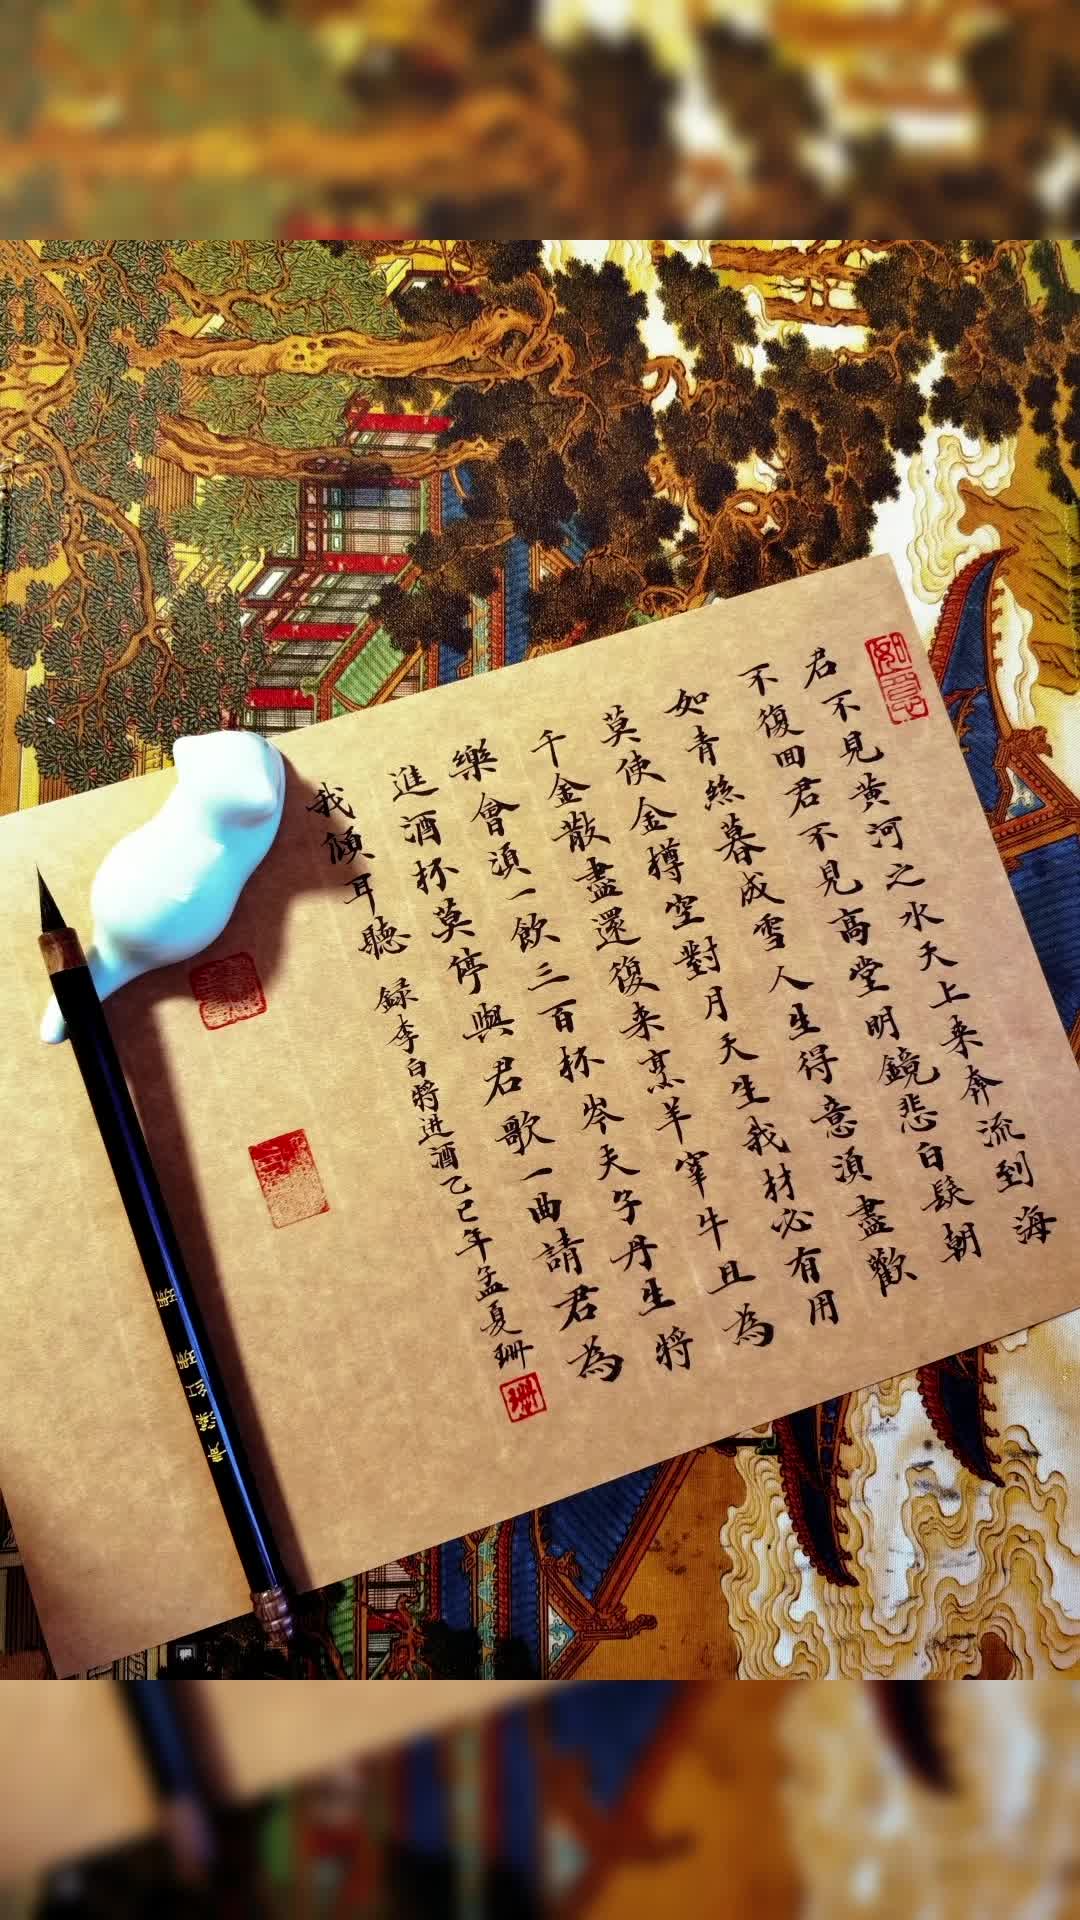 如意
君不見黃河之水天上来奔流到海
不復回君不見高堂明鏡悲白髮朝
如青絲暮成雪人生得意須盡歡
莫使金樽空對月天生我材必有用
千金散盡還復来烹羊宰牛且為
樂會須一飲三百杯岑夫子丹生將
進酒杯莫停與君歌一曲請君為
我傾耳聽
録李白將进酒乙巳年孟夏珊
珊